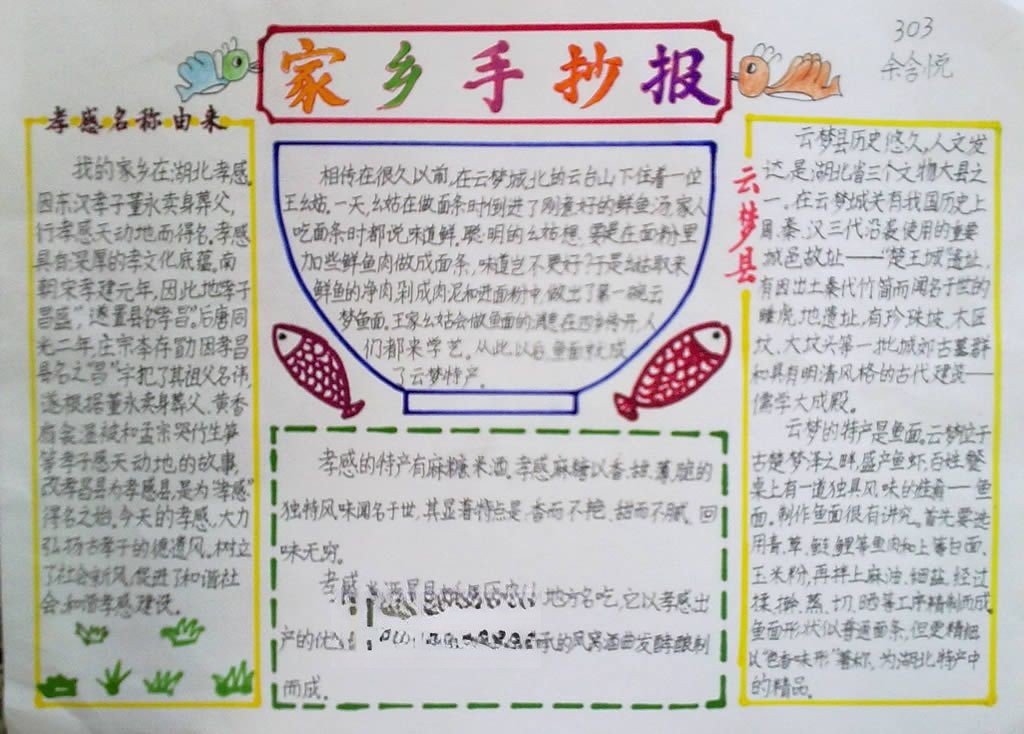 家乡手抄报
303
余含悦
孝感名称由来
我的家乡在湖北孝感,
因东汉孝子董永卖身葬父,
行孝感天动地而得名。孝感
具有深厚的孝文化底蕴。南
朝宋孝建元年,因此地“孝子
昌盛”,遂置县名“孝昌”。后唐同
光二年,庄宗李存勖因孝昌
县名之“昌”字犯了其祖父名讳,
遂根据董永卖身葬父、黄香
扇衾温被和孟宗哭竹生笋
等孝子感天动地的故事,
改孝昌县为孝感县,是为“孝感”
得名之始。今天的孝感,大力
弘扬古孝子的德遗风,树立
了社会新风,促进了和谐社
会、和谐孝感建设。
相传在很久以前,在云梦城北的云台山下住着一位
王幺姑。一天,幺姑在做面条时倒进了刚煮好的鲜鱼汤,家人
吃面条时都说味道鲜。聪明的幺姑想,要是在面粉里
加些鲜鱼肉做成面条,味道岂不更好?于是幺姑取来
鲜鱼的净肉,剁成肉泥和进面粉中,做出了第一碗云
梦鱼面。王家幺姑会做鱼面的消息在四乡传开,人
们都来学艺。从此以后,鱼面就成
了云梦特产。
孝感的特产有麻糖米酒。孝感麻糖以香、甜、薄、脆的
独特风味闻名于世,其显著特点是,香而不艳、甜而不腻、回
味无穷。
孝感米酒是具 地方名吃,它以孝感出
产的优 的风窝酒曲发酵酿制
而成。
云梦县
云梦县历史悠久,人文发
达,是湖北省三个文物大县之
一。在云梦城关有我国历史上
周、秦、汉三代沿袭使用的重要
城邑故址——“楚王城”遗址,
有因出土秦代竹简而闻名于世的
睡虎地遗址,有珍珠坡、木匠
坟、大坟头第一批城郊古墓群
和具有明清风格的古代建筑——
儒学大成殿。
云梦的特产是鱼面。云梦位于
古楚梦泽之畔,盛产鱼虾,百姓餐
桌上有一道独具风味的佳肴——鱼
面。制作鱼面很有讲究。首先要选
用青、草、鲢、鲤等鱼肉和上等白面、
玉米粉,再拌上麻油、细盐,经过
揉、擀、蒸、切、晒等工序精制而成。
鱼面形状似普通面条,但更精细,
以“色香味形”著称,为湖北特产中
的精品。